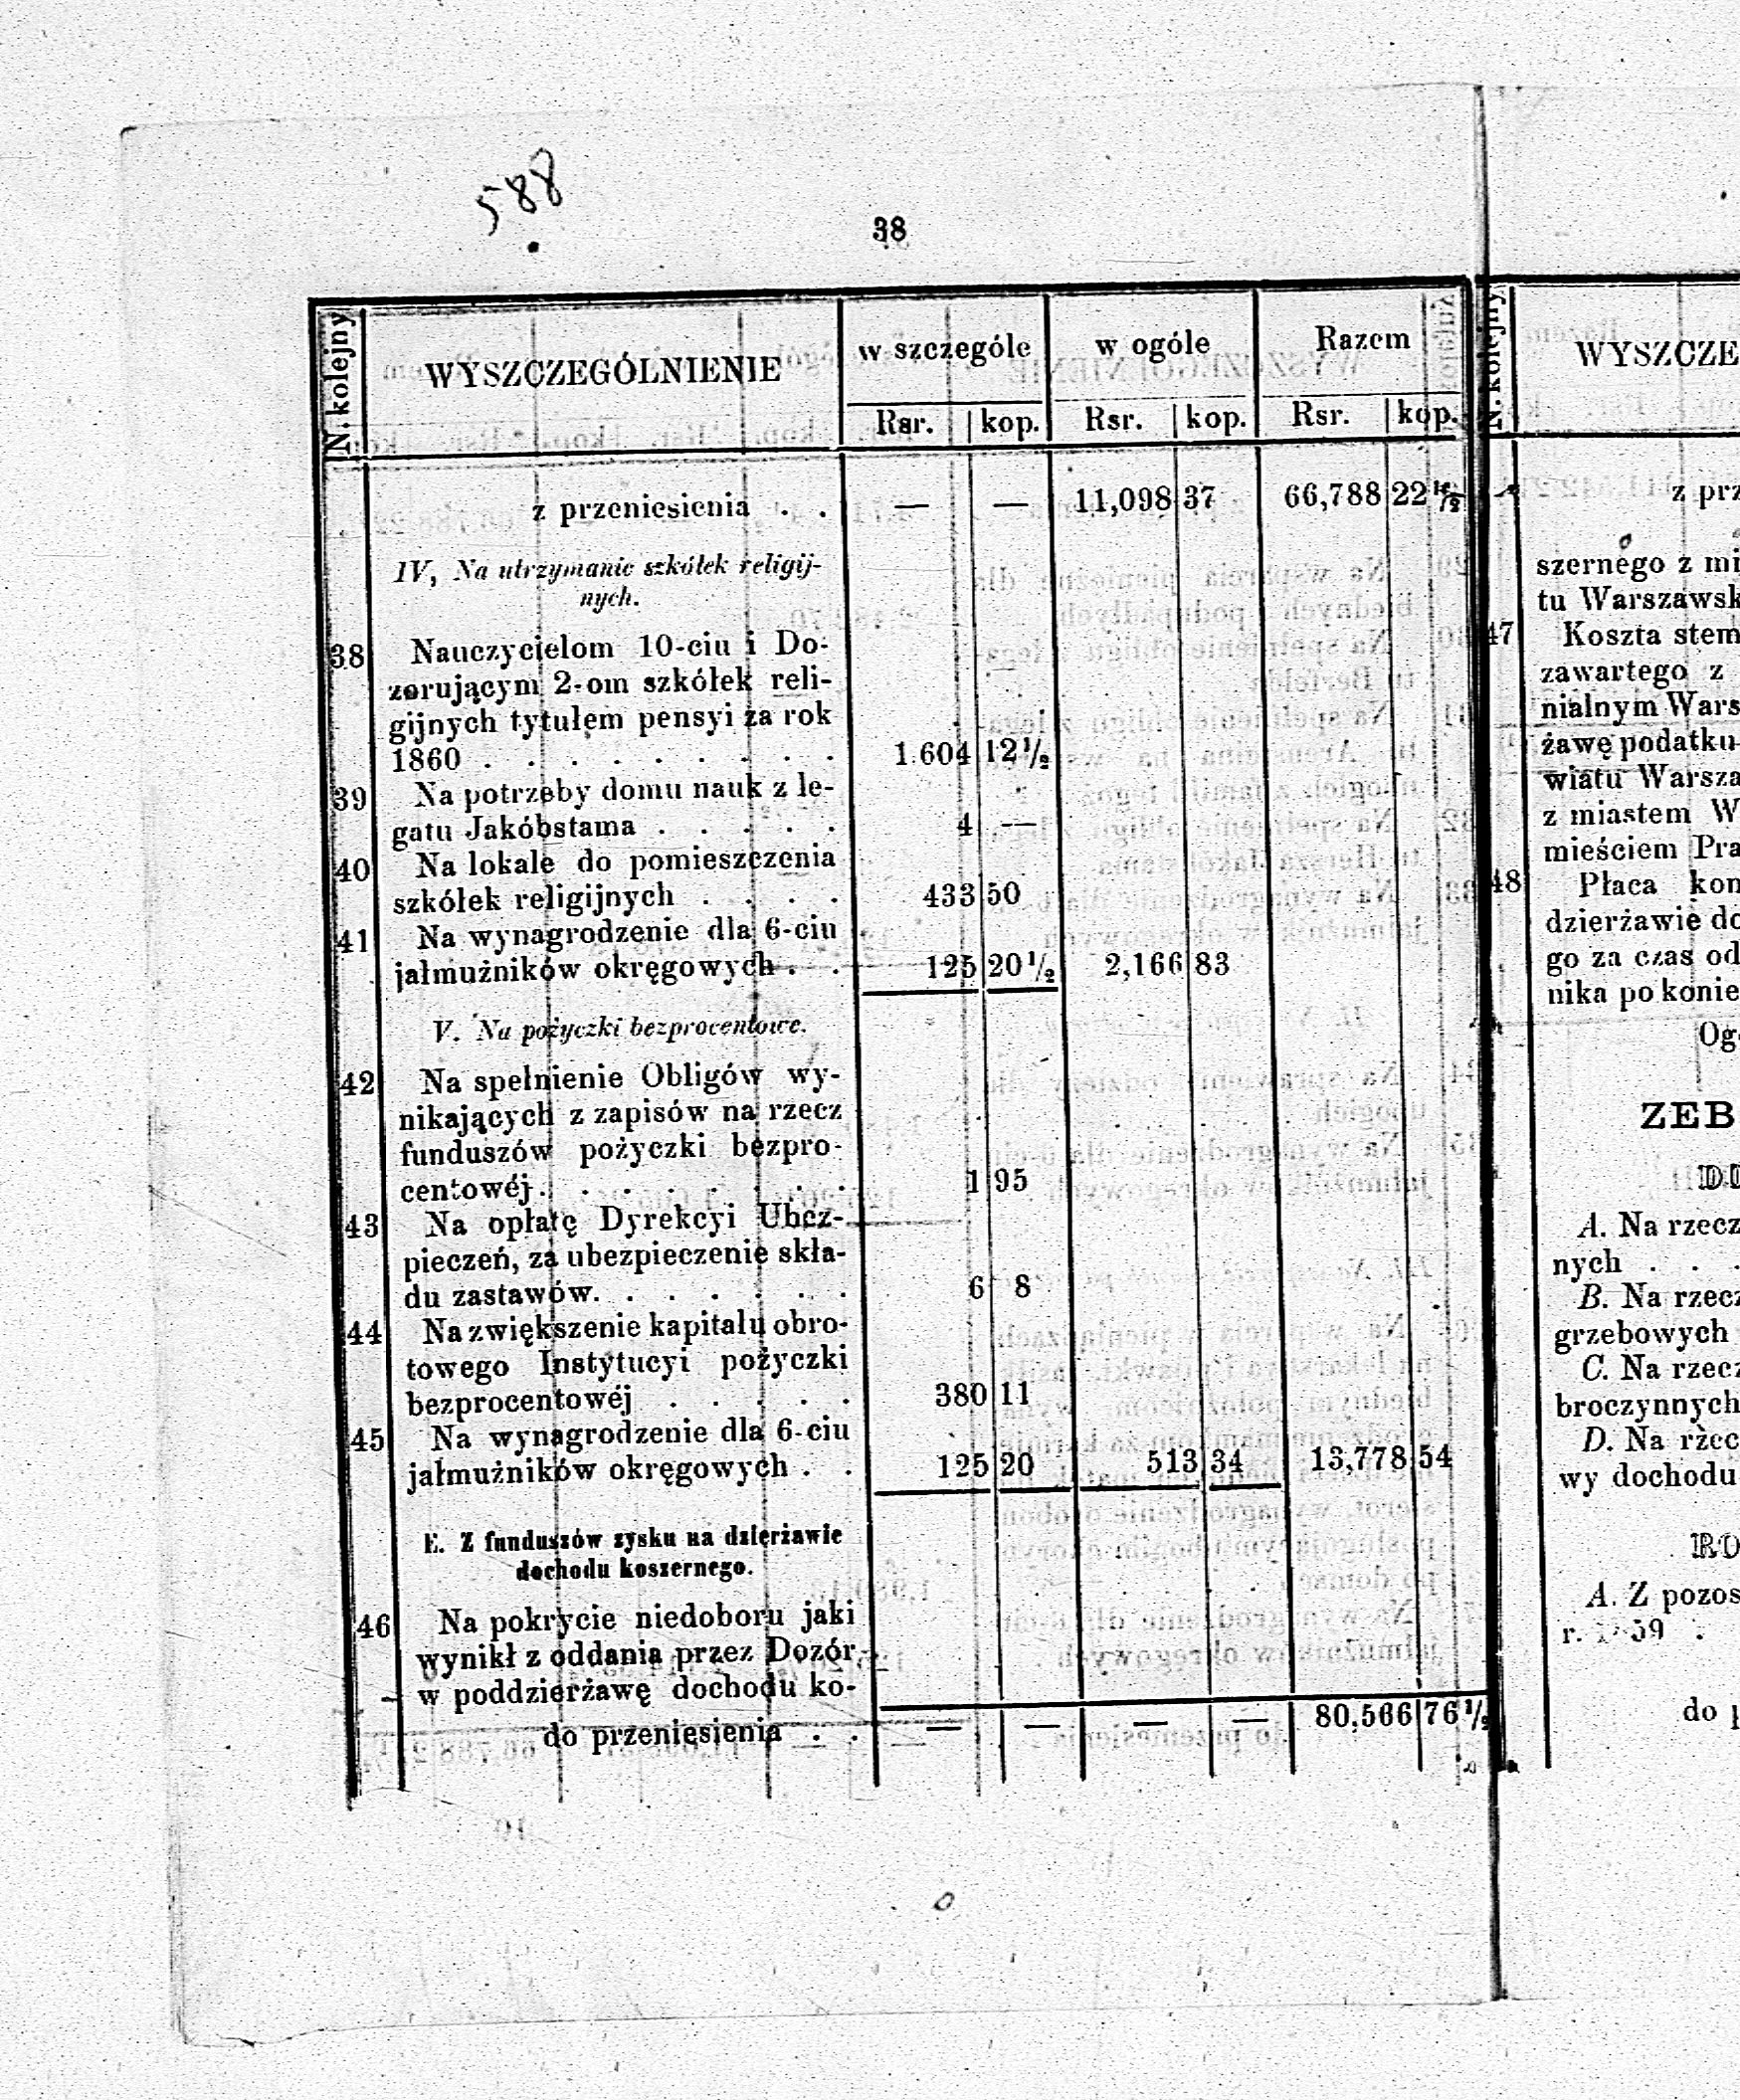 588
38
N. kolejny WYSZCZEGÓLNIENIE w szczególe w ogóle Razem
Rsr. kop. Rsr. kop. Rsr. kop.
z przeniesienia . . — — 11,098 37 66,788 22 1/2
IV, Na utrzymanie szkółek religij-
nych.
38 Nauczycielom 10-ciu i Do-
zorującym 2-om szkółek reli-
gijnych tytułem pensyi za rok
1860 . . . . . . . . . 1.604 12 1/2
39 Na potrzeby domu nauk z le-
gatu Jakóbstama . . . . . 4 —
40 Na lokale do pomieszczenia
szkółek religijnych . . . . 433 50
41 Na wynagrodzenie dla 6-ciu
jałmużników okręgowych . . 125 20 1/2 2,166 83
V. Na pożyczki bezprocentowe.
42 Na spełnienie Obligów wy-
nikających z zapisów na rzecz
funduszów pożyczki bezpro-
centowéj . . . . . . . . 1 95
43 Na opłatę Dyrekcyi Ubez-
pieczeń, za ubezpieczenie skła-
du zastawów. . . . . . . 6 8
44 Na zwiększenie kapitału obro-
towego Instytucyi pożyczki
bezprocentowéj . . . . . 380 11
45 Na wynagrodzenie dla 6-ciu
jałmużników okręgowych . . 125 20 513 34 13,778 54
E. Z funduszów zysku na dzierżawie
dochodu koszernego.
46 Na pokrycie niedoboru jaki
wynikł z oddania przez Dozór,
w poddzierżawę dochodu ko-
do przeniesienia . . — — — — 80,566 76 1/2
N. kolejny WYSZCZE
z prz
szernego z mi
tu Warszawsk
47 Koszta stem
zawartego z
nialnym Wars
żawę podatku
wiatu Warsza
z miastem W
mieściem Pra
48 Płaca kon
dzierżawie do
go za czas od
nika po konie
Og
ZEB
DO
A. Na rzecz
nych . . .
B. Na rzecz
grzebowych
C. Na rzecz
broczynnych
D. Na rzec
wy dochodu
RO
A. Z pozos
r. 1859 .
do p